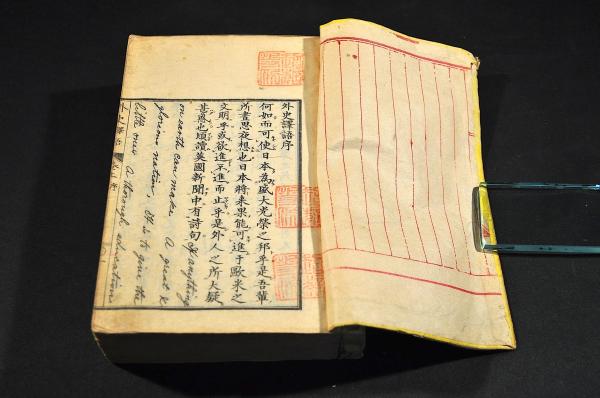 外史譯語序
何如而可使日本為盛大光榮之邦乎是吾輩
所晝思夜想也日本將来果能可進于歐米之
文明乎或欲進不進而止乎是外人之所大疑
甚惑也頃讀英國新聞中有詩句 If anything
on earth can make A great &
glorious nation, It is to give the
little ones A thorough education